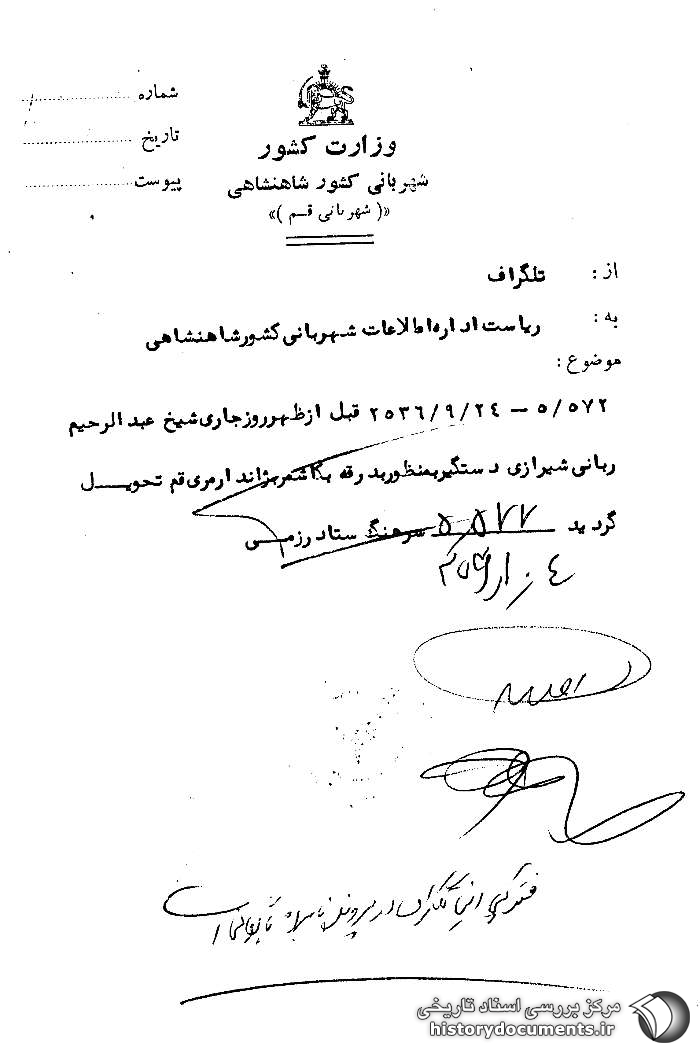 شماره
تاریخ
پیوست
وزارت کشور
شهربانی کشور شاهنشاهی
«( شهربانی قم )»
از : تلگراف
به : ریاست اداره اطلاعات شهربانی کشور شاهنشاهی
موضوع :
۵/۵۷۲ – ۲۵۳۶/۹/۲۴ قبل از ظهر روز جاری شیخ عبد الرحیم
ربانی شیرازی دستگیر بمنظور بدرقه بکاشمر بژاندارمری قم تحویل
گردید ۵۵۷۷ سرهنگ ستاد رزمی
این تلگراف در پرونده
مرکز بررسی اسناد تاریخی
historydocuments.ir